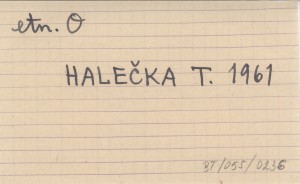 etn. O
HALEČKA T. 1961
BT/055/0236